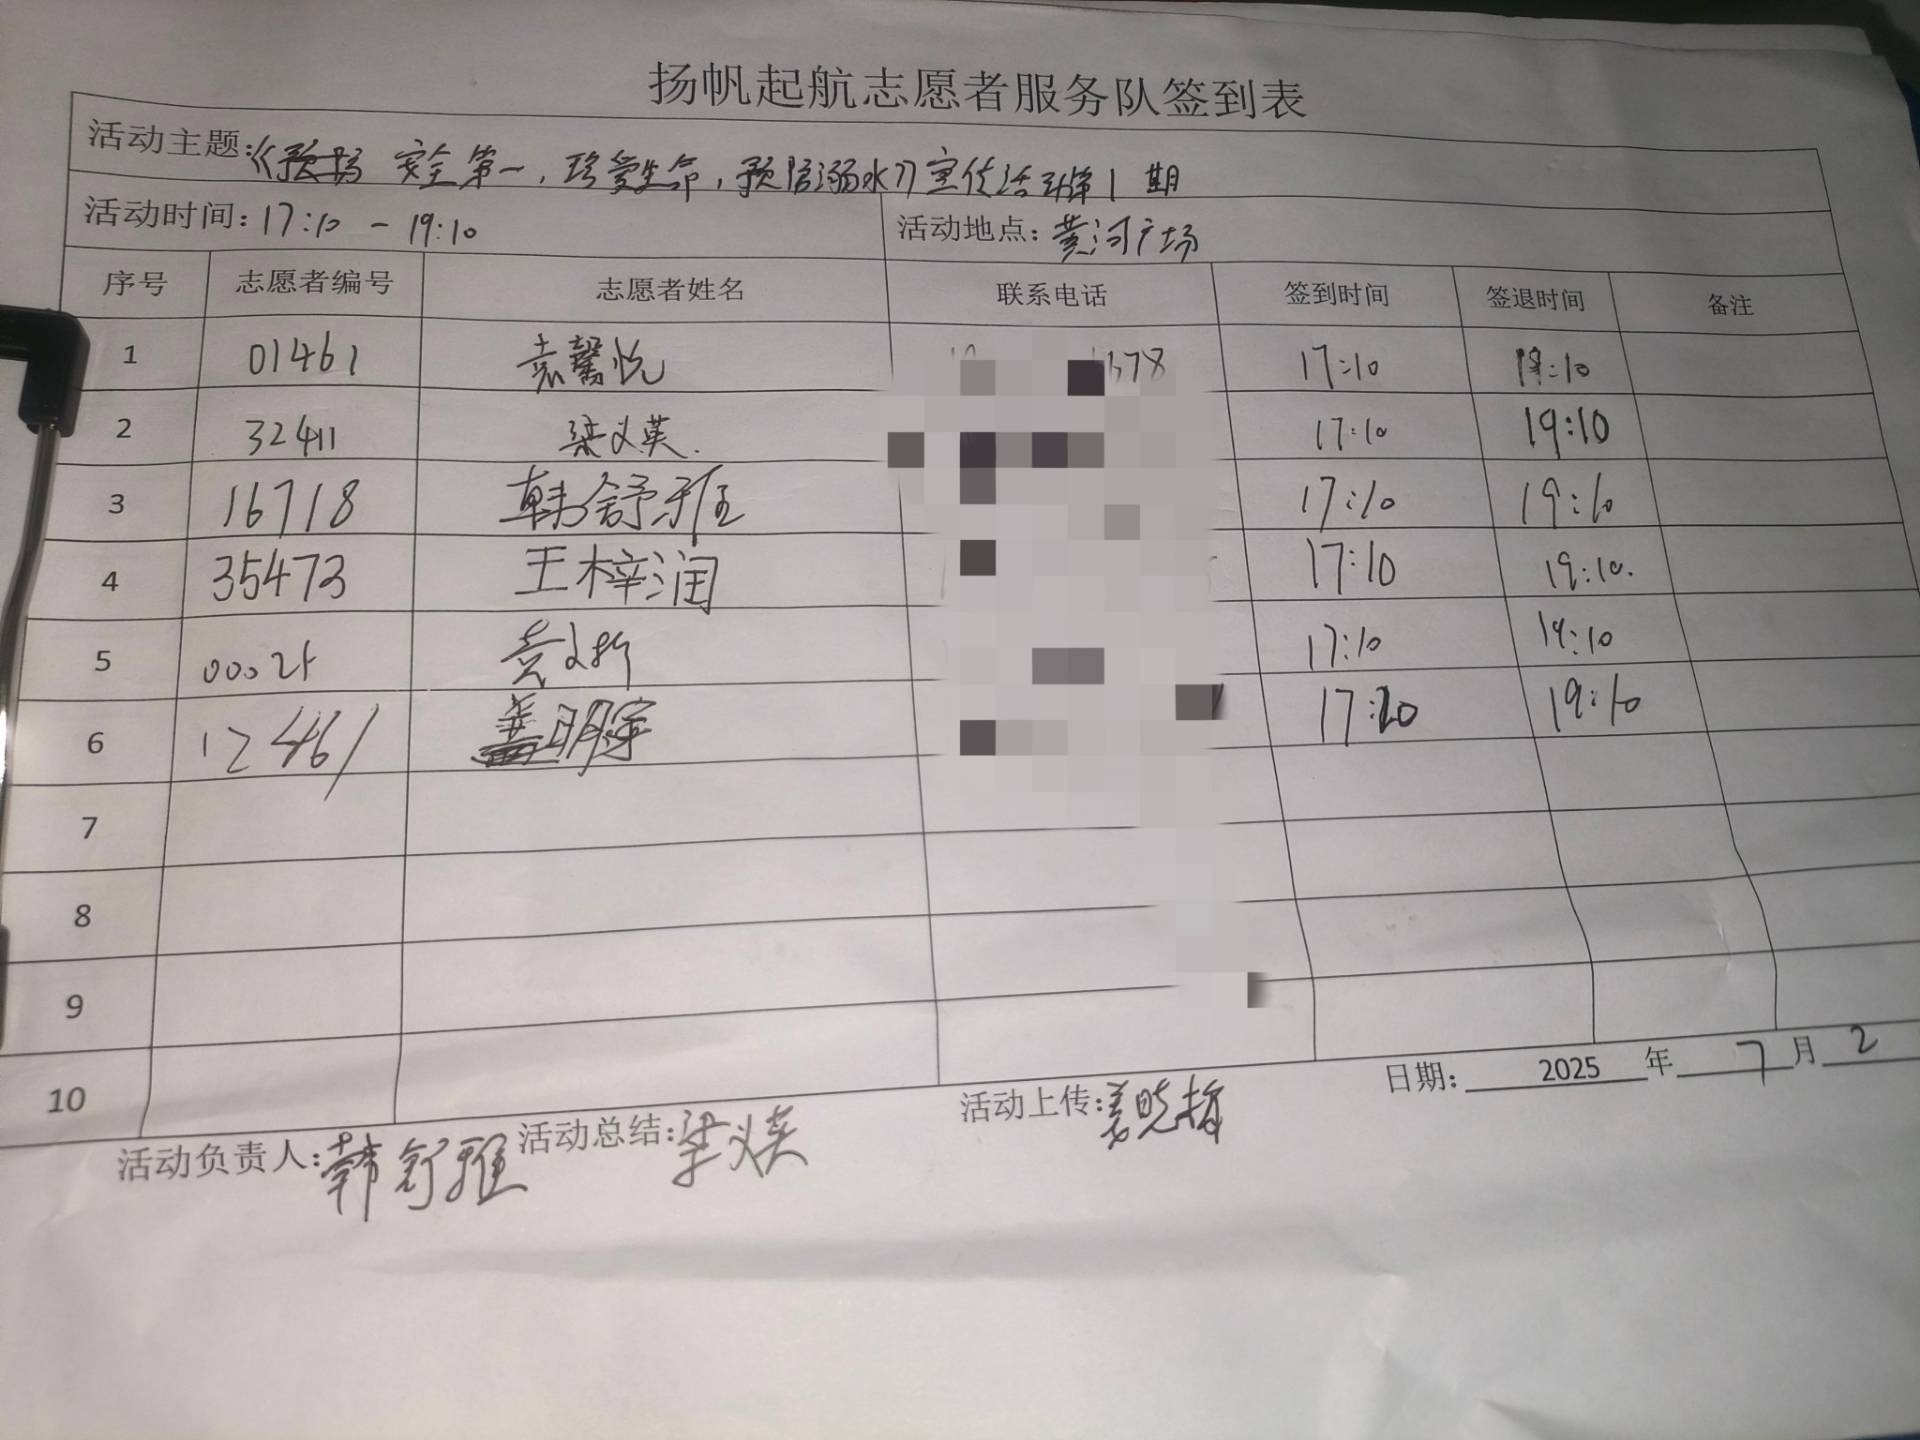 扬帆起航志愿者服务队签到表
活动主题:《安全第一,珍爱生命,预防溺水》宣传活动第1期
活动时间:17:10-19:10 活动地点:黄河广场
序号 志愿者编号 志愿者姓名 联系电话 签到时间 签退时间 备注
1 01461 袁馨悦 17:10 19:10
2 32411 梁义英. 17:10 19:10
3 16718 韩舒雅 17:10 19:10
4 35473 王梓润 17:10 19:10.
5 17:10 19:10
6 12461 盖明宇 17:10 19:10
7
8
9
10
日期: 2025 年 7 月 2
活动负责人:韩舒雅 活动总结:梁义英 活动上传:姜晓梅